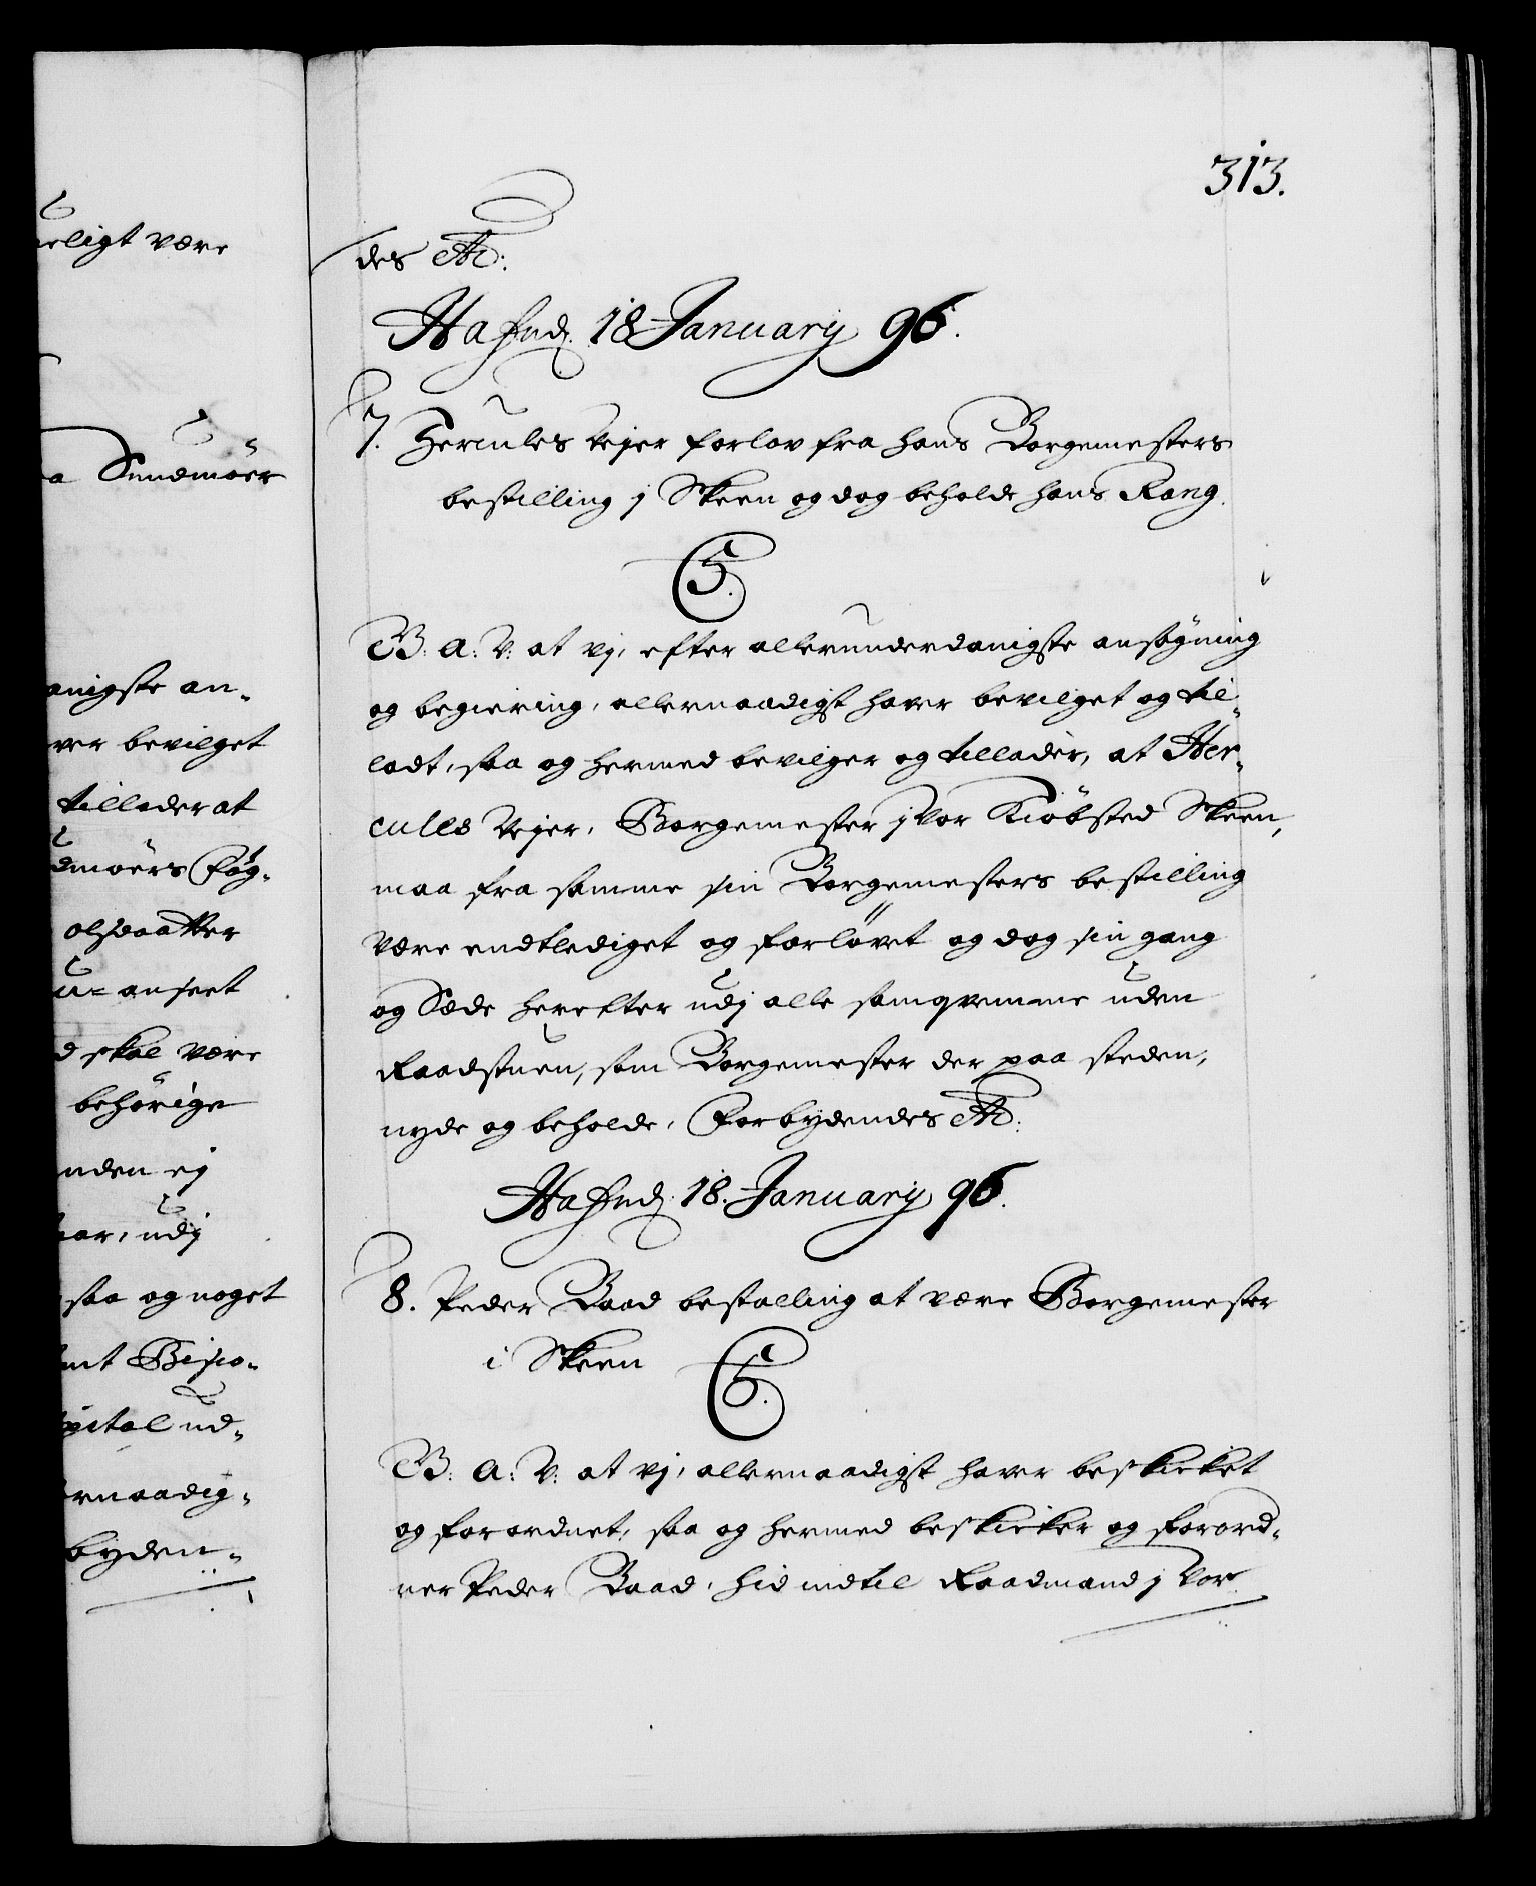 313.
des Etc:
Hafnd. 18 January 96.
7. Hercules Vejer forlov fra hans Borgemesters
bestilling j Skeen og dog beholde hans Rang.
C5.
B: A: V: at vj, efter allerunderdanigste ansøgning
og begiering, allernaadigst haver bevilget og til-
ladt, saa og hermed bevilger og tillader, at Her-
cules Vejer, Borgemester j Vor Kiöbsted Skeen,
maa fra samme sin Borgemesters bestilling
være endtlediget og forløvet og dog sin gang
og Sæde herefter udj alle samqvemme uden
Raadstuen, som Borgemester der paa steden,
nyde og beholde, Forbydendes Etc:
Hafnd. 18. January 96.
8. Peder Baad bestalling at være Borgemester
i Skeen
C5.
B: A: V: at vj, allernaadigst haver beskicket
og forordnet, saa og hermed beskicker og forord-
ner Peder Baad, hid indtil Raadmand j Vor
eligt være
a Sundmöer
anigste an-
ver bevilget
tillader at
dmöers Fög-
olsdaatter
u- anseet
d skal være
behörige
nden ej
aar, udj
saa og noget
mt Bispo-
pital ud-
ernaadig-
byden-